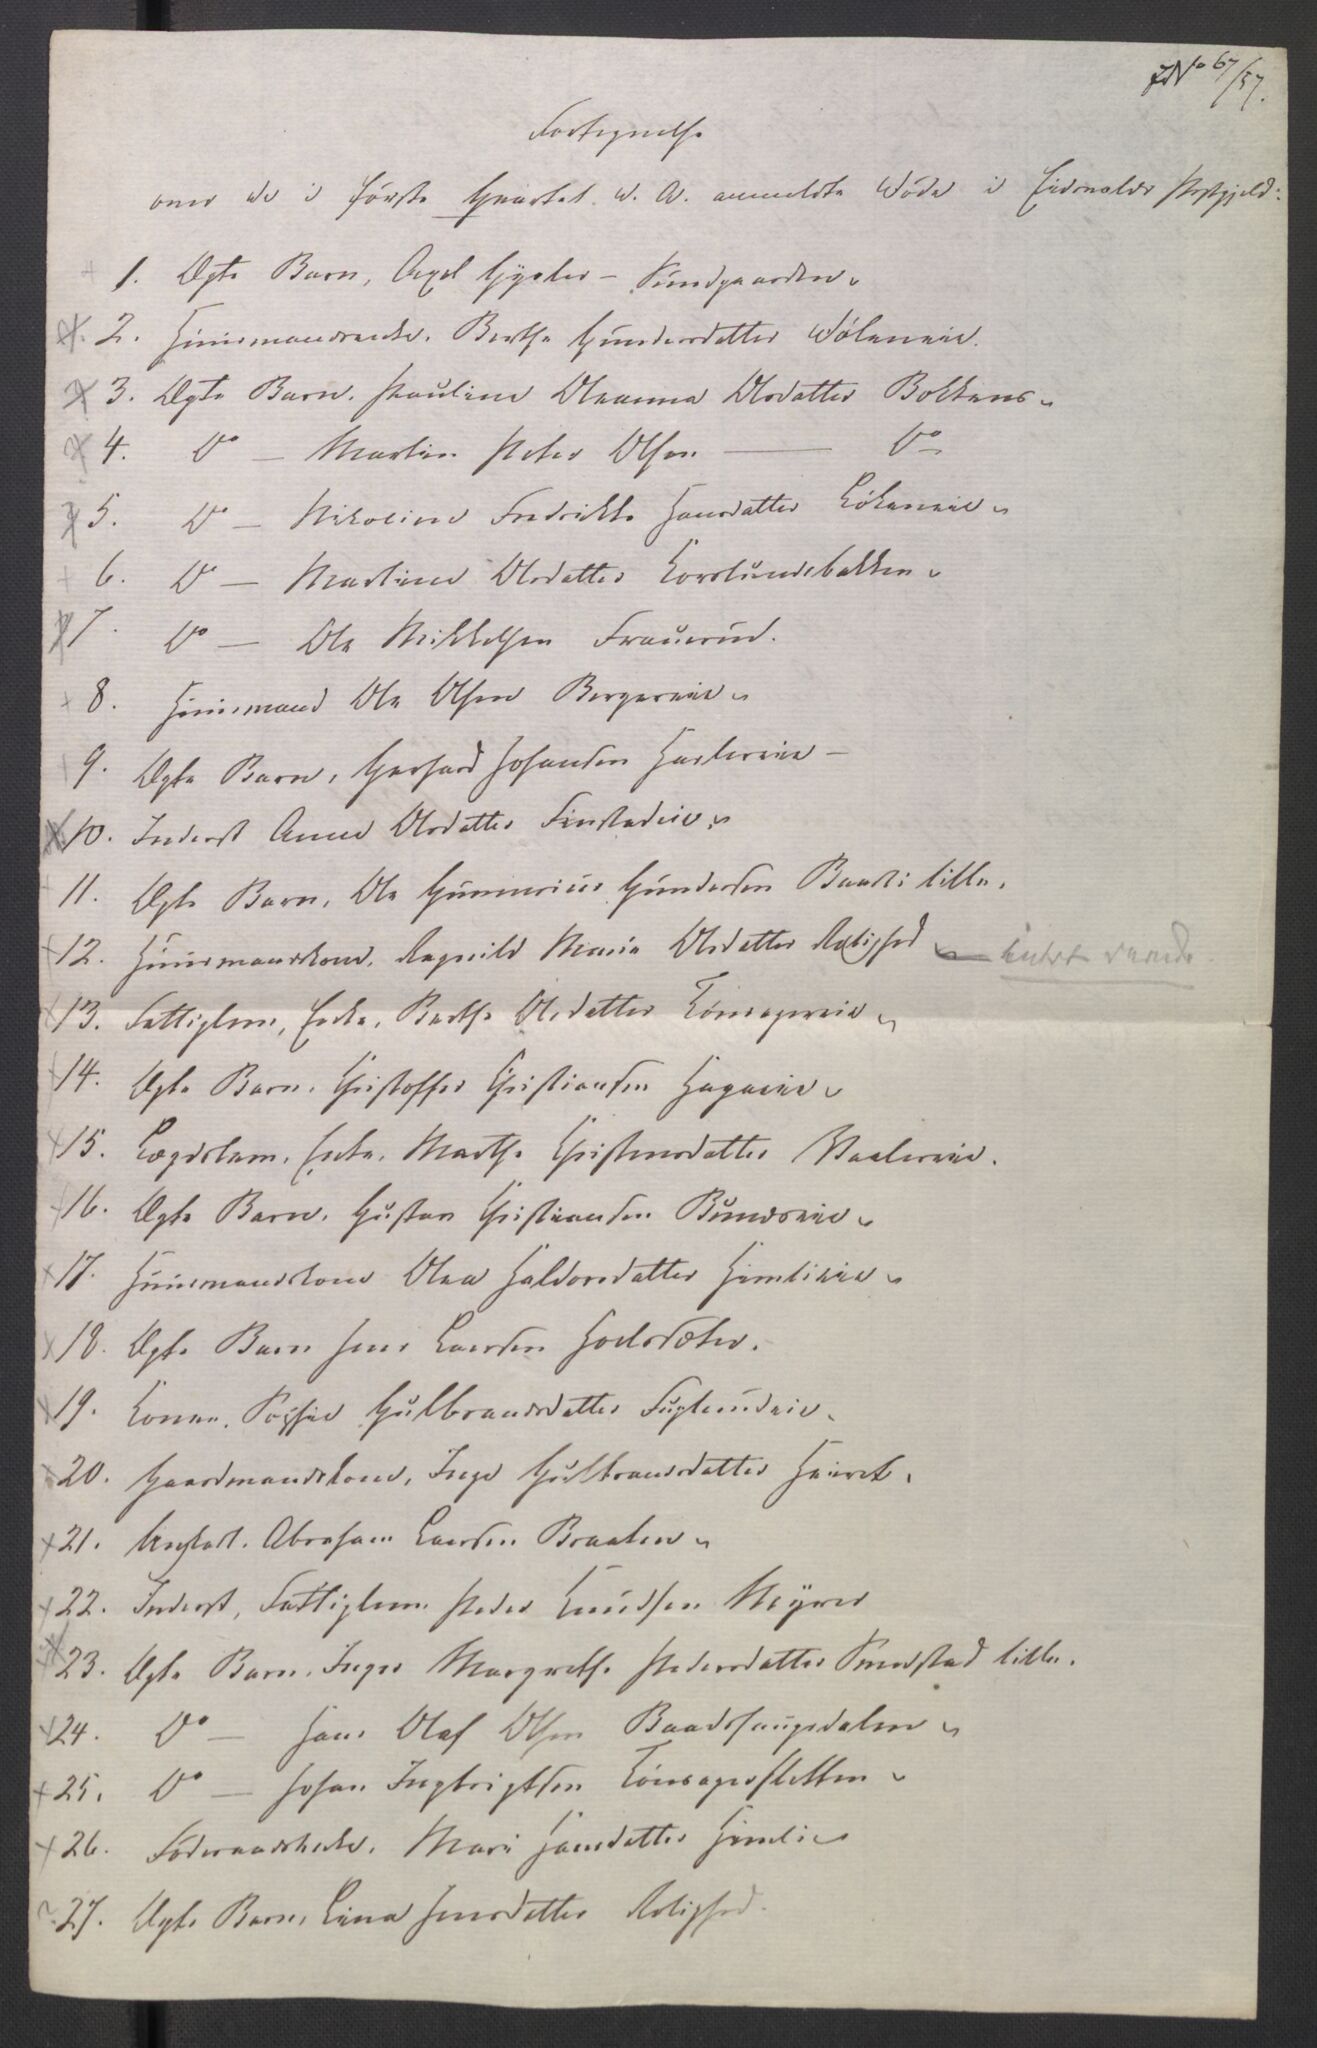 No 67/57.
Fortegnelse
over de i første Qvartal d. A. anmeldte Døde i Eidsvolds Præstgjeld:
1. Ægte Barn, Axel Gysler - Sundgaarden
2. Huusmandsenke. Berthe Gundersdatter Døleneie.
3. Ægte Barn. Pauline Oleanna Olsdatter Bolkens
4. Do — Martin Peter Olsen — Do
5. Do — Nikoline Fredrikke Hansdatter Løkeneie
6. Do — Martine Olsdatter Korslundsbakken
7. Do — Ole Mikkelsen Frauerud.
8. Huusmand Ole Olsen Bergereie
9. Ægte Barn, Gerhard Johansen Habereie -
10. Inderst Anne Olsdatter Finstadeie
11. Ægte Barn, Ole Gunnerius Gundersen Baarli lille.
12. Huusmandskone, Ragnild Marie Olsdatter Rolighed
13. Fattiglem, Enke, Berthe Olsdatter Tønsagereie
14. Ægte Barn. Christoffer Christiansen Hagaeie
15. Lægdslem, Enke, Marthe Christensdatter Vaalereie.
16. Ægte Barn. Gustav Christiansen Bundseie
17. Huusmandskone Olea Haldorsdatter Himlieie
18. Ægte Barn Jens Larsen Holsæter.
19. Kone. Sophie Gulbrandsdatter Fuglerudeie
20. Gaardmandskone, Inge Gulbrandsdatter
21. Ungkarl. Abraham Larsen Braaten
22. Inderst, Fattiglem. Peder Knudsen Myrer
23. Ægte Barn. Inger Margrethe Pedersdatter lille.
24. Do — Hans Olaf Olsen Baadshaugsdalen
25. Do — Johan Ingbrigtsen Tønsagersletten
26. Føderaadsenke. Mari Hansdatter Himlie
27. Ægte Barn, Lina Jensdatter Rolighed.